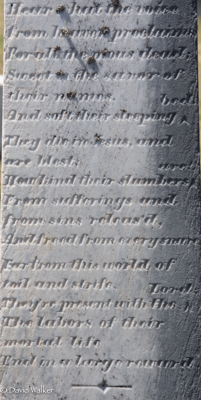 Hear what the voice
from heaven proclaims
For all the pious dead;
Sweet is the savor of
their names.
bed.
And soft their sleeping
They die in Jesus, and
are blest;
are!
How kind their slumbers
From sufferings and
from sins releas'd,
And freed from every snare
Far from this world of
toil and strife.
Lord.
They're present with the
The labors of their
mortal life
End in a large reward
© David Walker